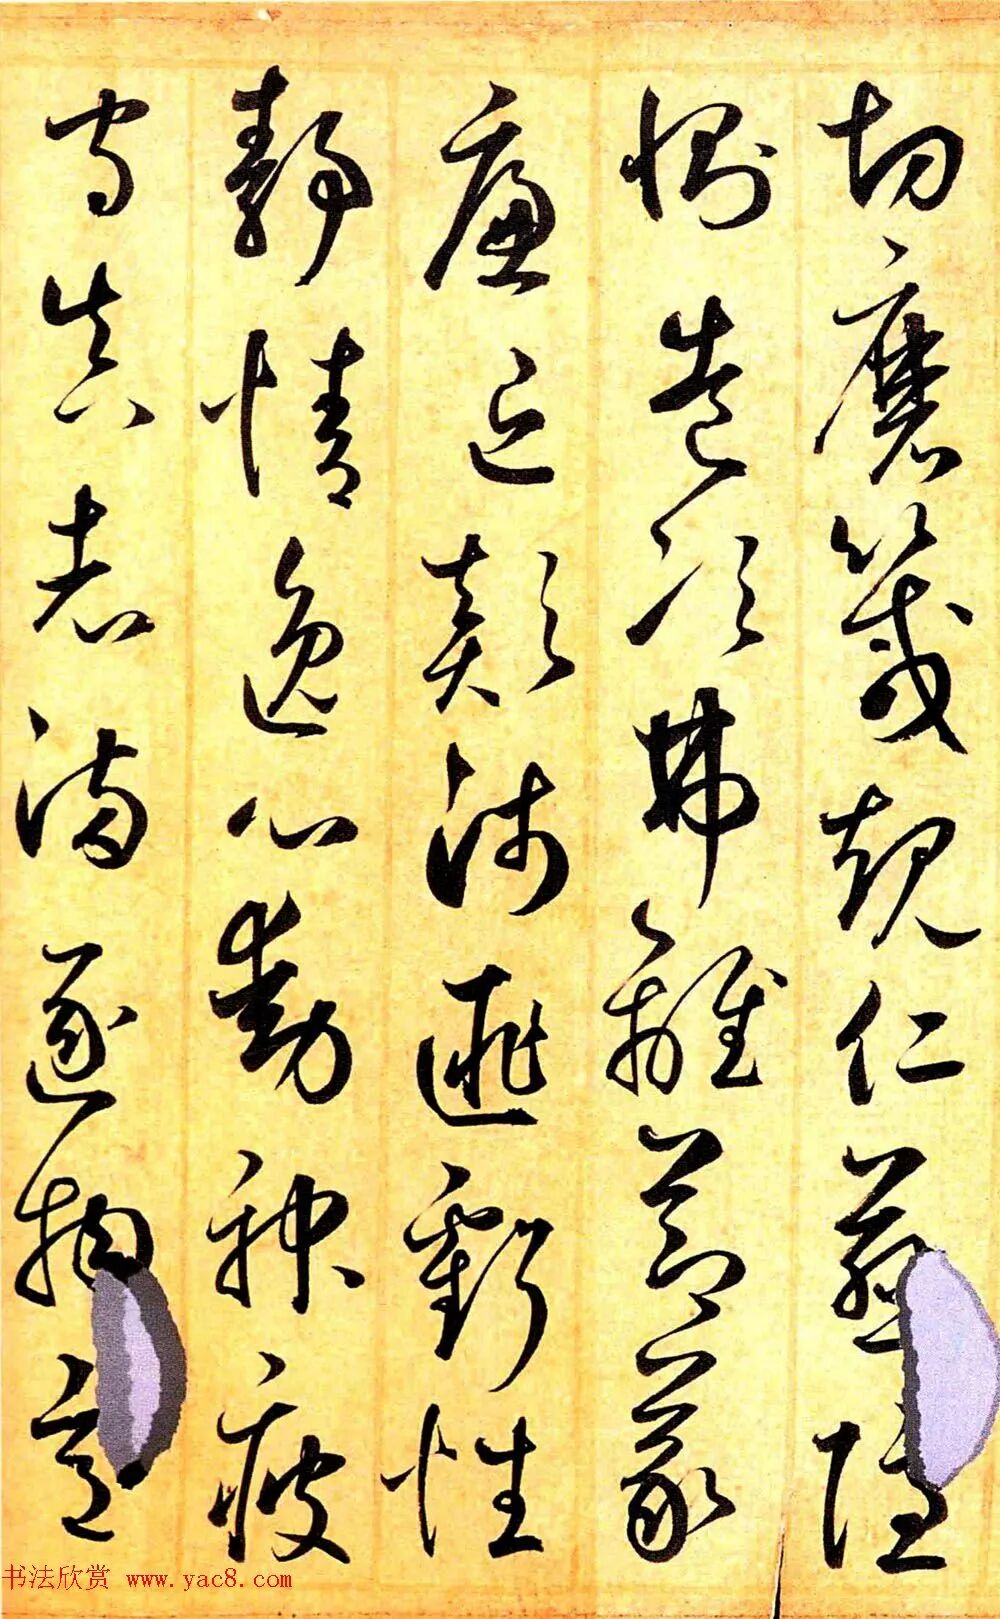 切磨箴規仁慈隱
惻造次弗離節義
廉退顛沛匪虧性
靜情逸心動神疲
守真志滿逐物意
书法欣赏 www.yac8.com